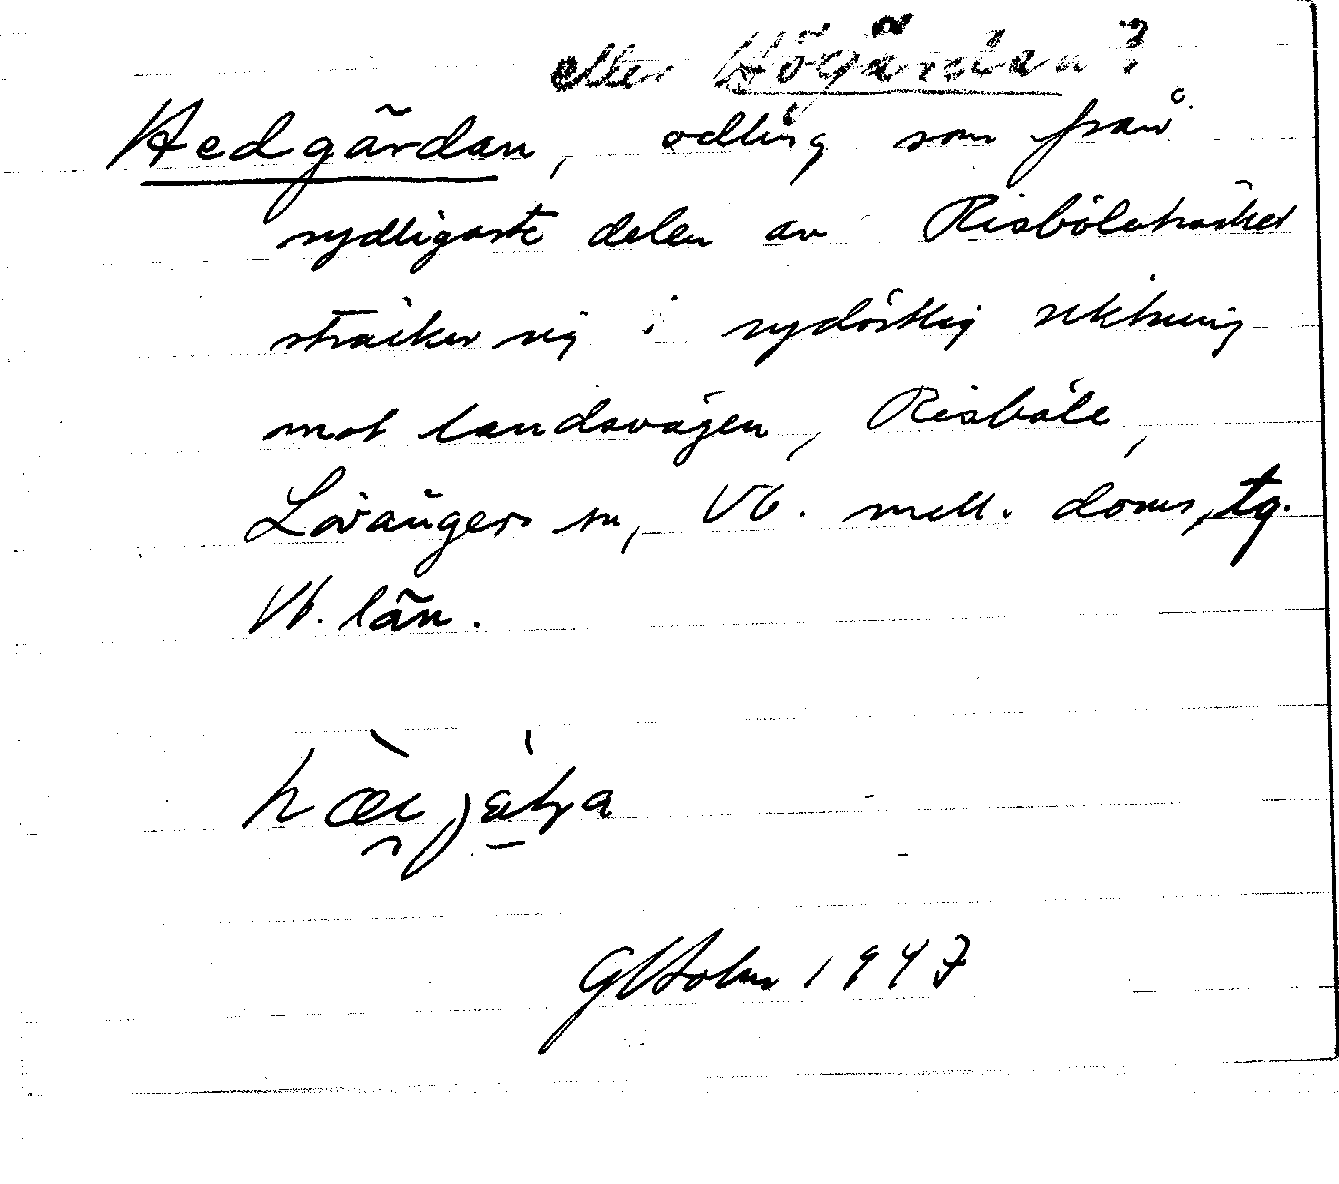 eller Högärdan?
Hedgärdan, odling som från
sydligaste delen av Risböleträsket
sträcker sig i sydöstlig riktning
mot landsvägen, Risböle,
Lövångers sn, Vb. mell. doms. tg.
Vb. län.
GHolm 1947